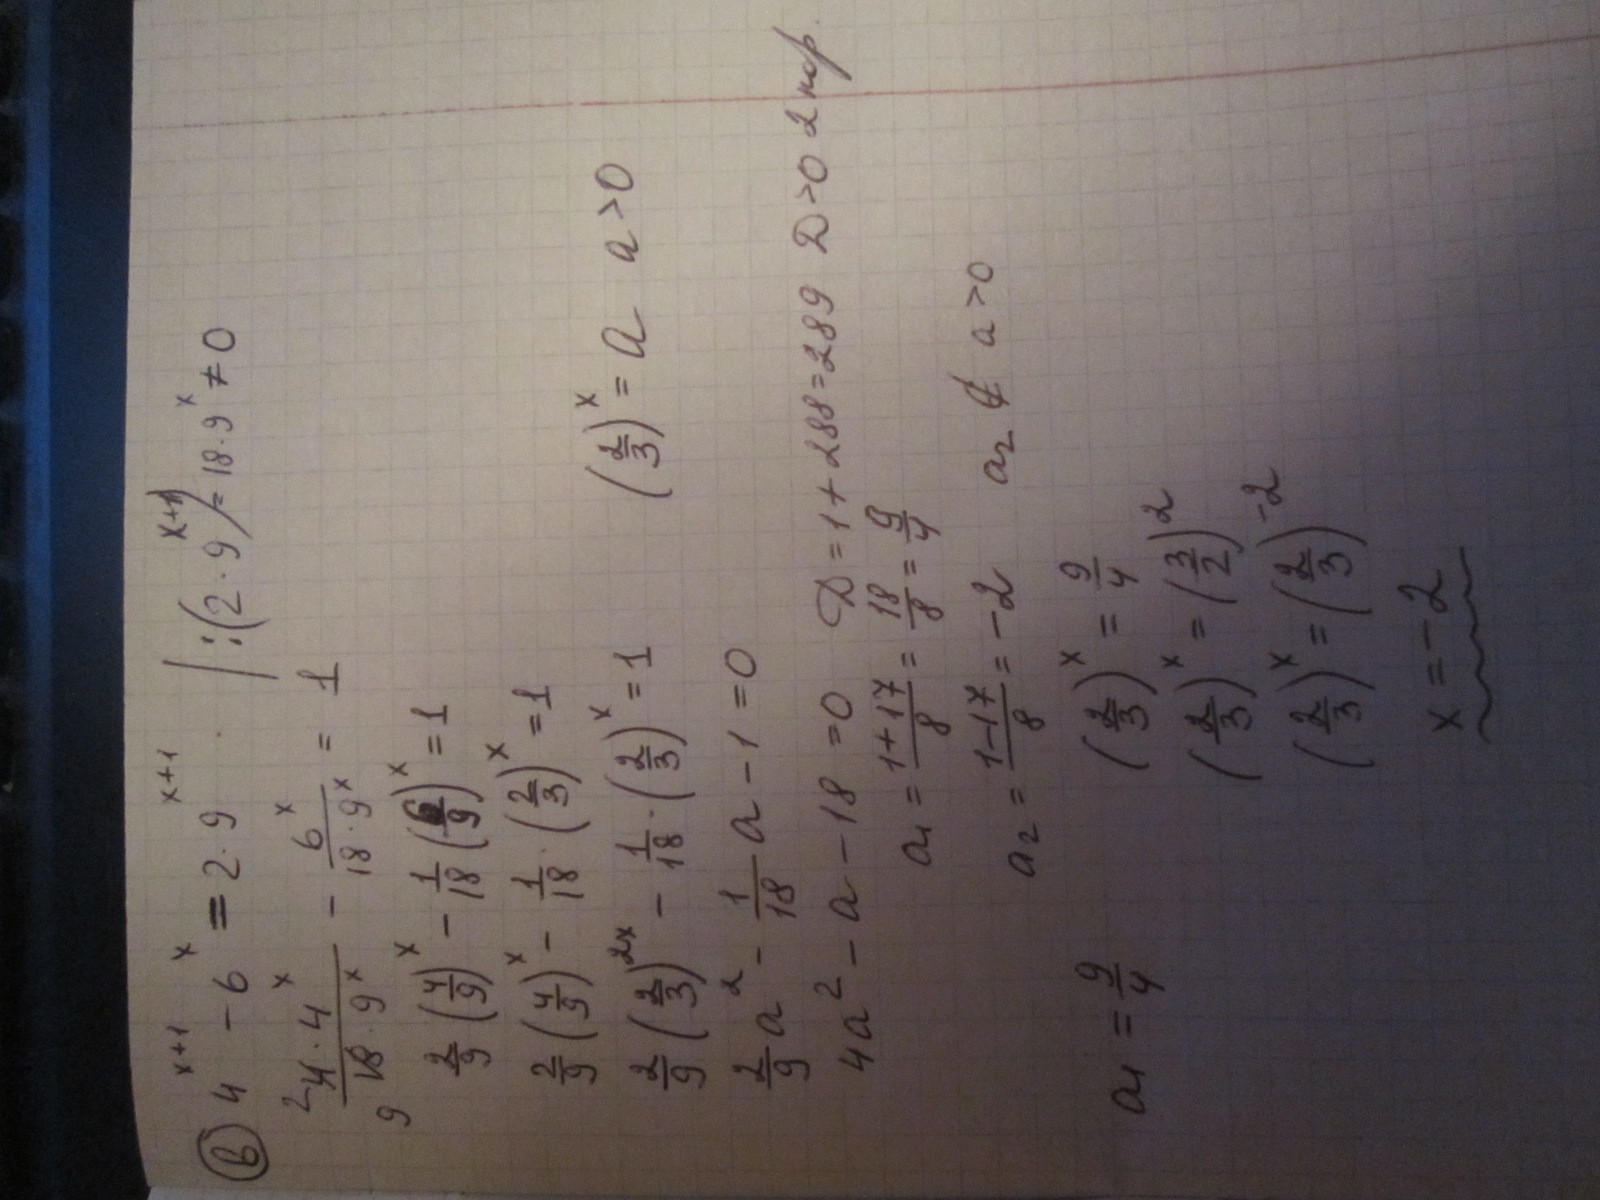 в) 4^(x+1) - 6^x = 2·9^(x+1) | :(2·9^(x+1)) = 18·9^x ≠ 0
(4·4^x)/(18·9^x) - 6^x/(18·9^x) = 1
2 9
2/9 (4/9)^x - 1/18 (6/9)^x = 1
2/9 (4/9)^x - 1/18 · (2/3)^x = 1
2/9 (2/3)^(2x) - 1/18 · (2/3)^x = 1 (2/3)^x = a a > 0
2/9 a^2 - 1/18 a - 1 = 0
4a^2 - a - 18 = 0 D = 1 + 288 = 289 D > 0 2 кор.
a₁ = (1+17)/8 = 18/8 = 9/4
a₂ = (1-17)/8 = -2 a₂ ∉ a > 0
a₁ = 9/4 (2/3)^x = 9/4
(2/3)^x = (3/2)^2
(2/3)^x = (2/3)^(-2)
x = -2